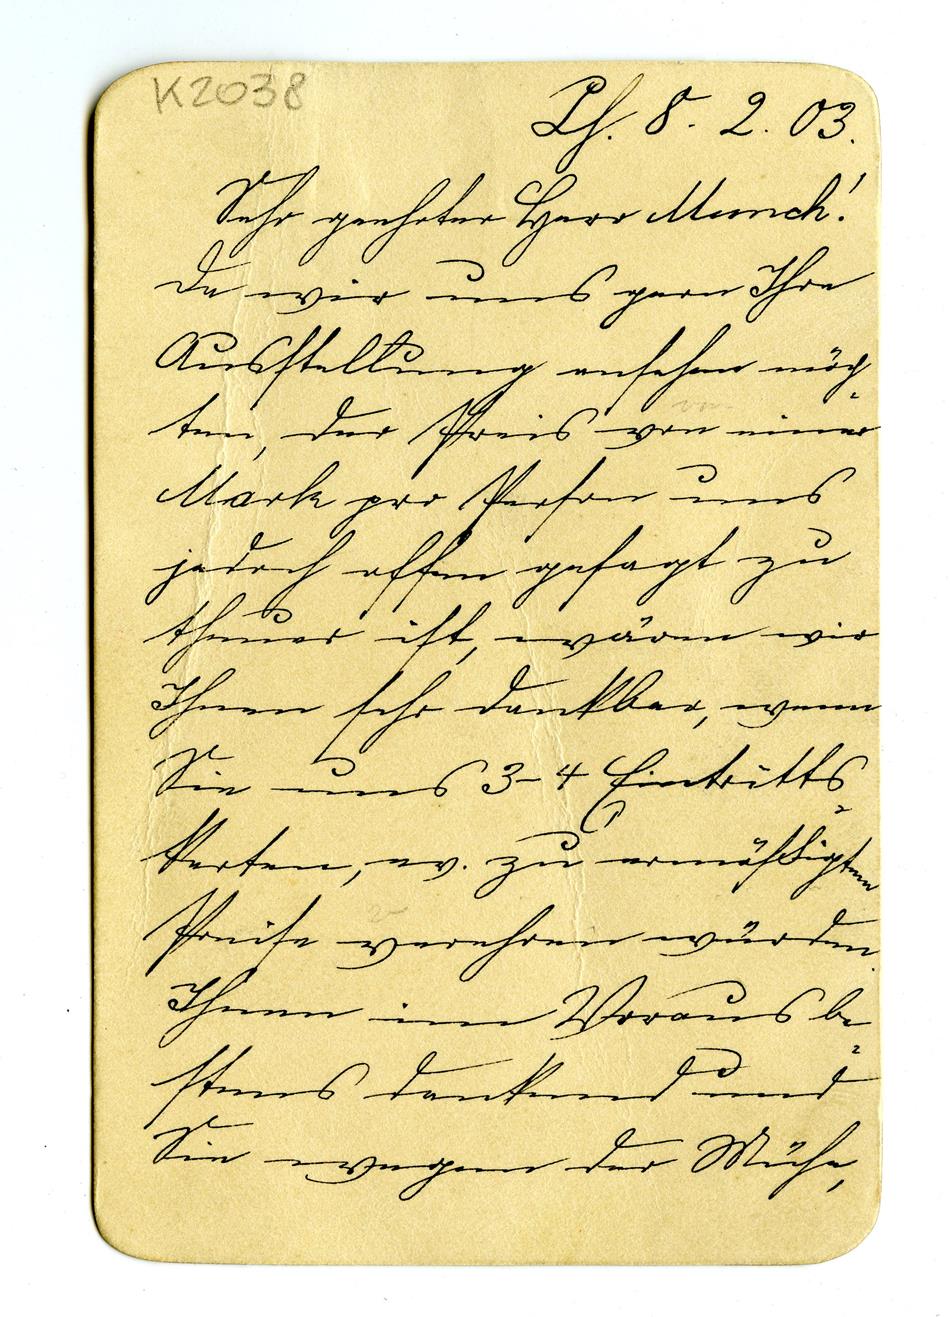 K2038
Lh. 8. 2. 03.
Sehr geehrter Herr Munch!
Da wir uns gern Ihre
Ausstellung ansehen möch-
ten, der Preis von einer
Mark pro Person uns
jedoch offen gesagt zu
theuer ist, wären wir
Ihnen sehr dankbar, wenn
Sie uns 3-4 Eintritts-
karten, ev. zu ermäßigtem
Preise verehren würden.
Ihnen im Voraus be-
stens dankend und
Sie wegen der Mühe,